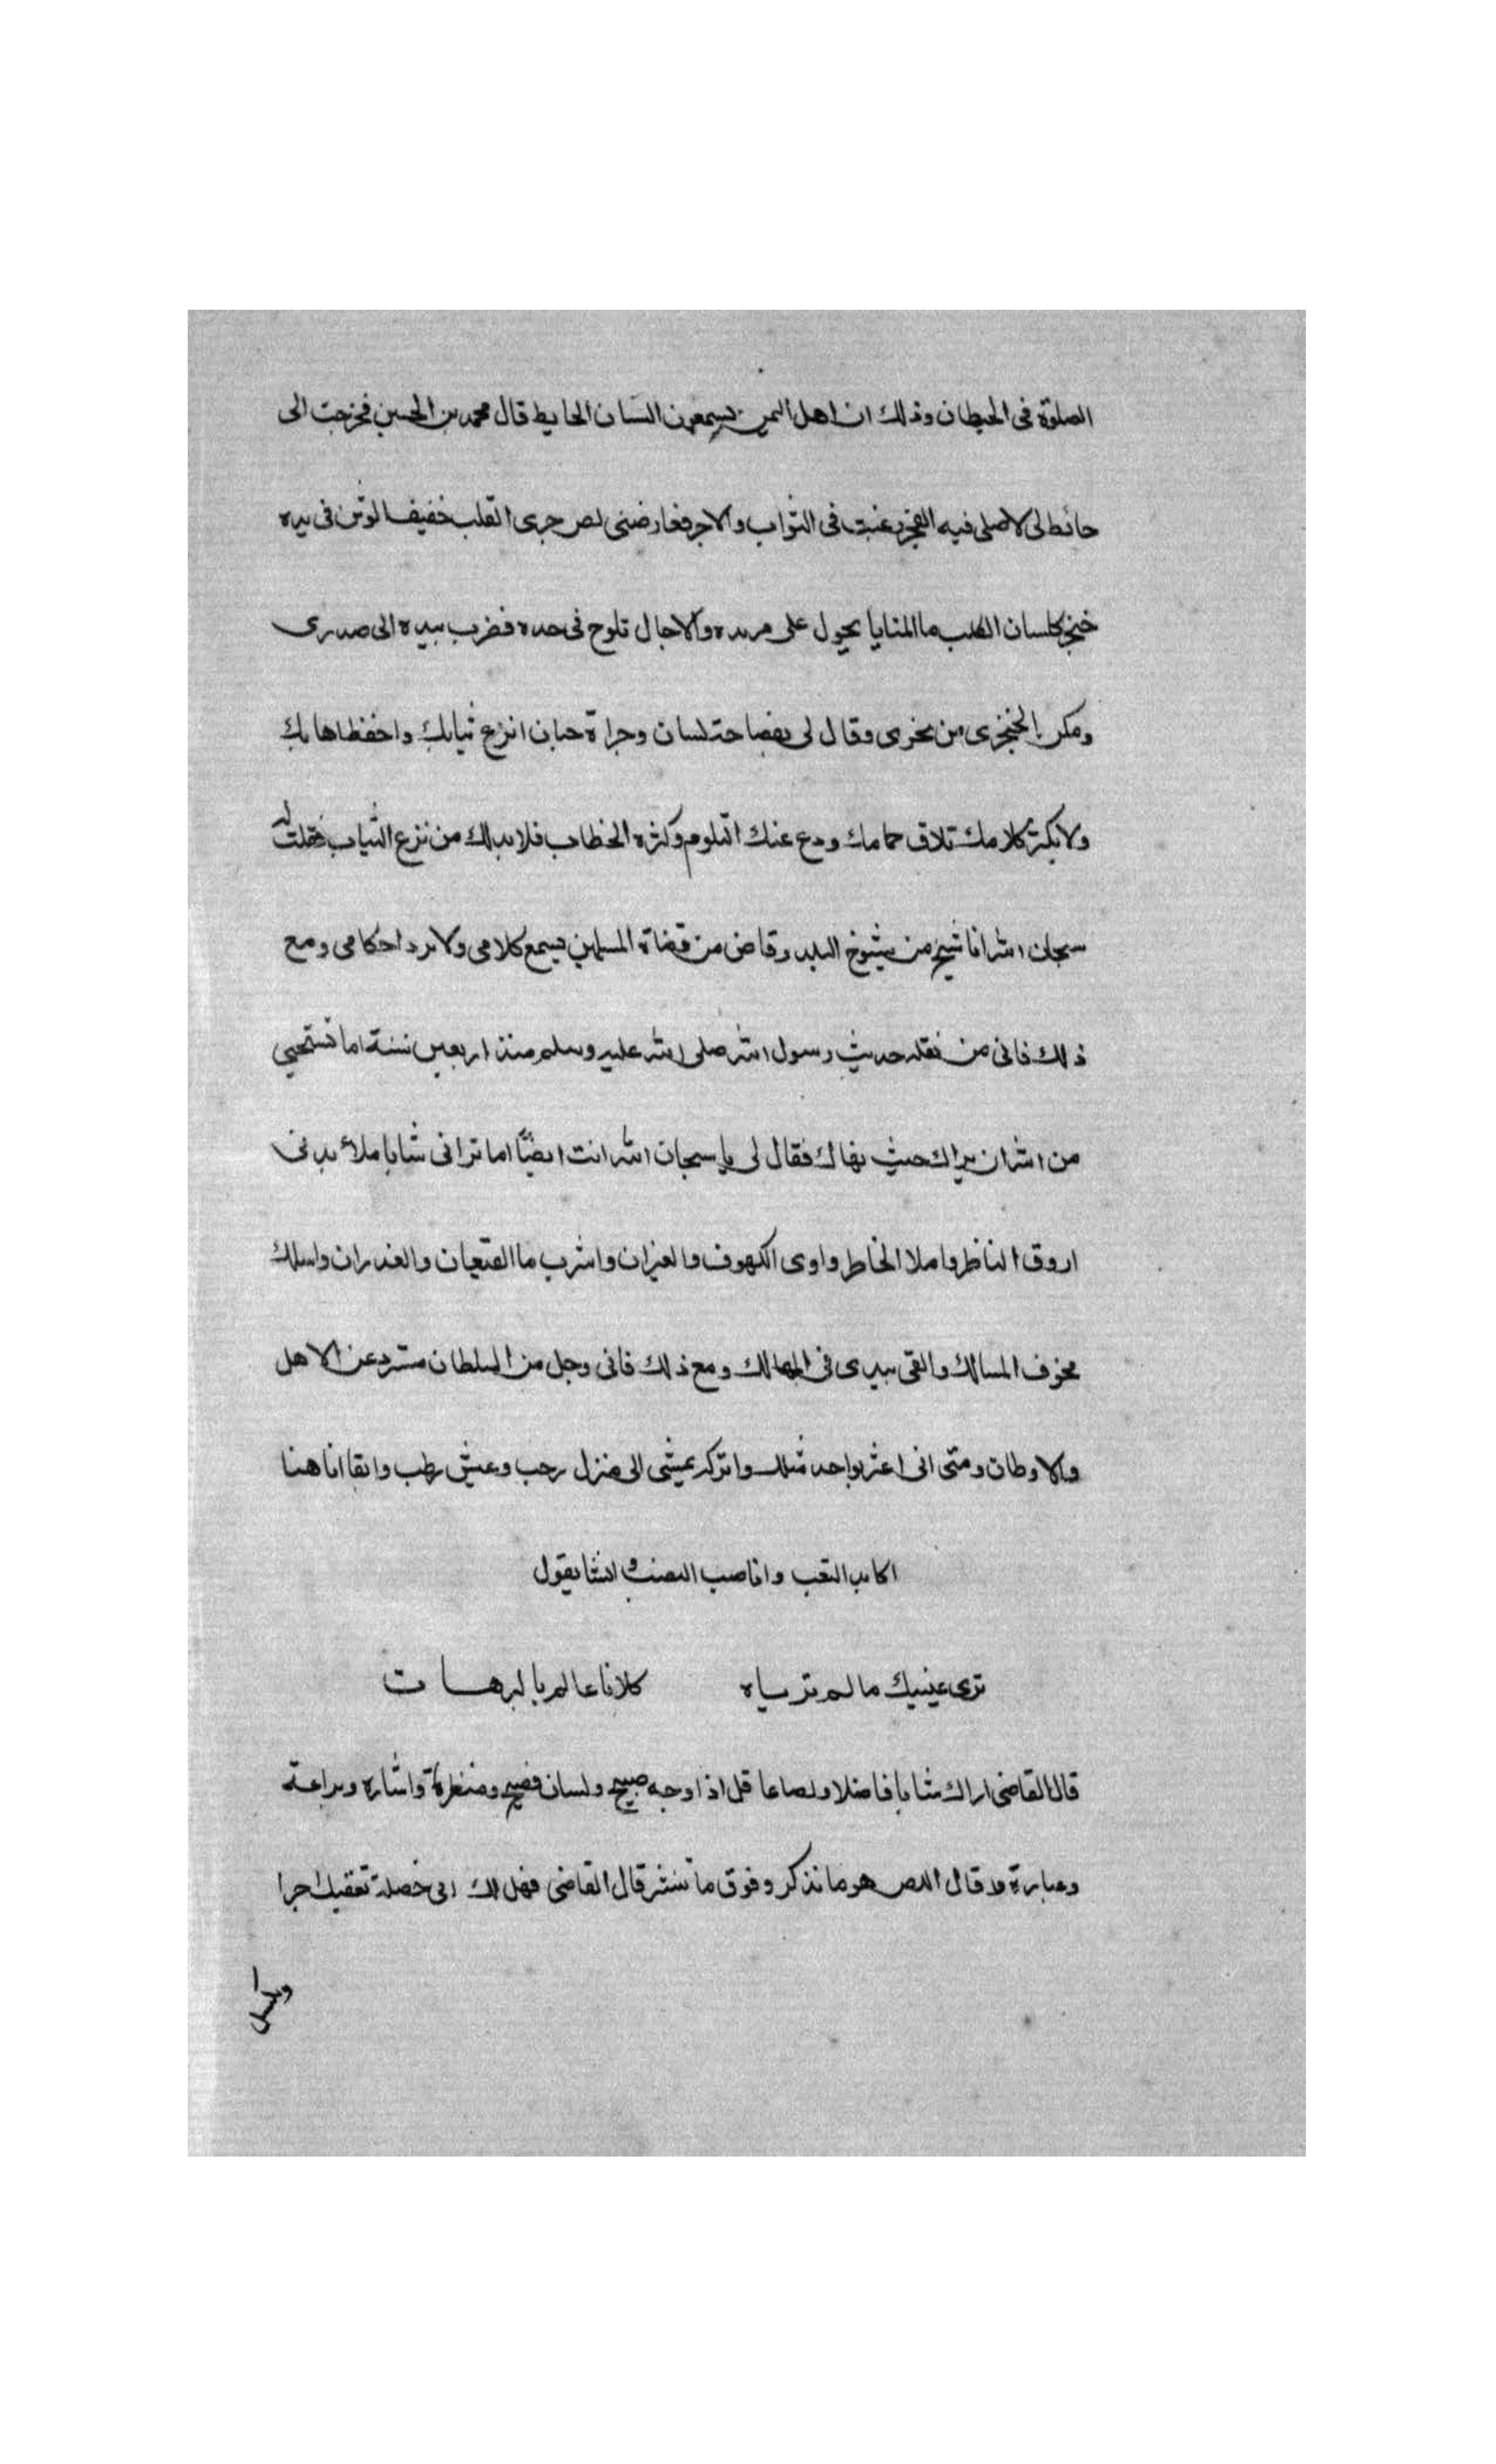 الصلوة فى الحيطان وذلك ان اهل اليمن يسمعون البستان الحايط قال محمد بن الحسين فخرجت الى
حائط لى لاصلى فيه الفجر رغبت فى الثواب والاجر فعارضنى لص جرى القلب خفيف الوثن فى يده
خنجر كلسان الكلب ما المنايا يجول على مريده والاجال تلوح فى حده فضرب بيده الى صدرى
ومكن الخنجرى من نحرى وقال لى بفصاحت لسان وجراة جنان انزع ثيابك واحفظ اهابك
ولا تكثر كلامك تلاق حمامك ودع عنك التلوم وكثره الخطاب فلا بد لك من نزع الثياب فقلت له
سبحان الله انا شيخ من شيوخ البلد وقاض من قضاة المسلمين يسمع كلامى ولا ترد احكامى ومع
ذلك فانى من نقله حديث رسول الله صلى الله عليه وسلم منذ اربعين سنة اما تستحيي
من الله ان يراك حيث نهاك فقال لى يا سبحان الله انت ايضًا اما ترانى شابا ملأ بدنى
اروق الناظر واملا الخاطر واوى الكهوف والغيران واشرب ما القيعان والغدران واسلك
مخوف المسالك والقى بيدى فى المهالك ومع ذلك فانى وجل من السلطان مشرد عن الاهل
والاوطان ومتى انى اعثر بواحد مثلك واتركه يمشى الى منزل رحب وعيش رطب وابقا انا هنا
اكابد التعب واناصب النصب وانشا يقول
ترى عينيك ما لم ترياه كلانا عالم بالترهات
قال القاضى اراك شابا فاضلا ولصا عاقل اذا وجه صبيح ولسان فصيح ومنظرة واشارة وبراعة
وعبارة قال اللص هو ما تذكر وفوق ما تنشر قال القاضى فهل لك الى خصلة تعقبك اجرا